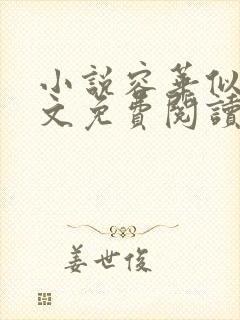 小説容華似
文免費閱讀
姜世俊